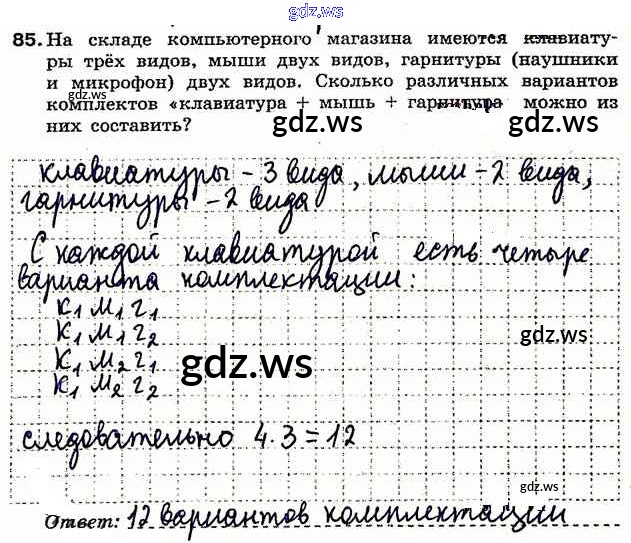 gdz.ws
85. На складе компьютерного магазина имеются клавиату-
ры трёх видов, мыши двух видов, гарнитуры (наушники
и микрофон) двух видов. Сколько различных вариантов
gdz.ws
комплектов «клавиатура + мышь + гарнитура можно из
них составить?
gdz.ws
gdz.ws
клавиатуры - 3 вида, мыши - 2 вида,
гарнитуры - 2 вида
С каждой клавиатурой есть четыре
варианта комплектации:
К₁ М₁ г₁
К₁ М₁ г₂
gdz.ws
К₁ М₂ г₁
gdz.ws
К₁ М₂ г₂
следовательно 4·3=12
gdz.ws
gdz.ws
Ответ: 12 вариантов комплектации
gdz.ws